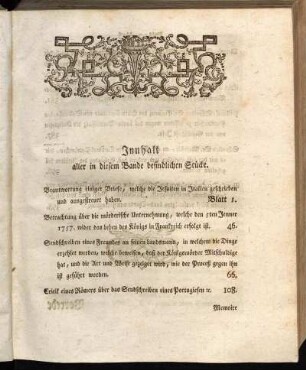 Innhalt
aller in diesem Bande befindlichen Stücke.
Beantwortung einiger Briefe, welche die Jesuiten in Italien geschrieben
und ausgestreuet haben. Blatt 1.
Betrachtung über die mörderische Unternehmung, welche den 5ten Jenner
1757. wider das leben des Königs in Frankreich erfolgt ist. 46.
Sendschreiben eines Franzosen an seinen landsmann, in welchem die Dinge
erzehlet werden, welche beweisen, daß der Königsmörder Mitschuldige
hat, und die Art und Weise gezeiget wird, wie der Proceß gegen ihn
ist geführet worden. 66.
Critik eines Römers über das Sendschreiben eines Portugiesen ꝛc. 108.
Memoire